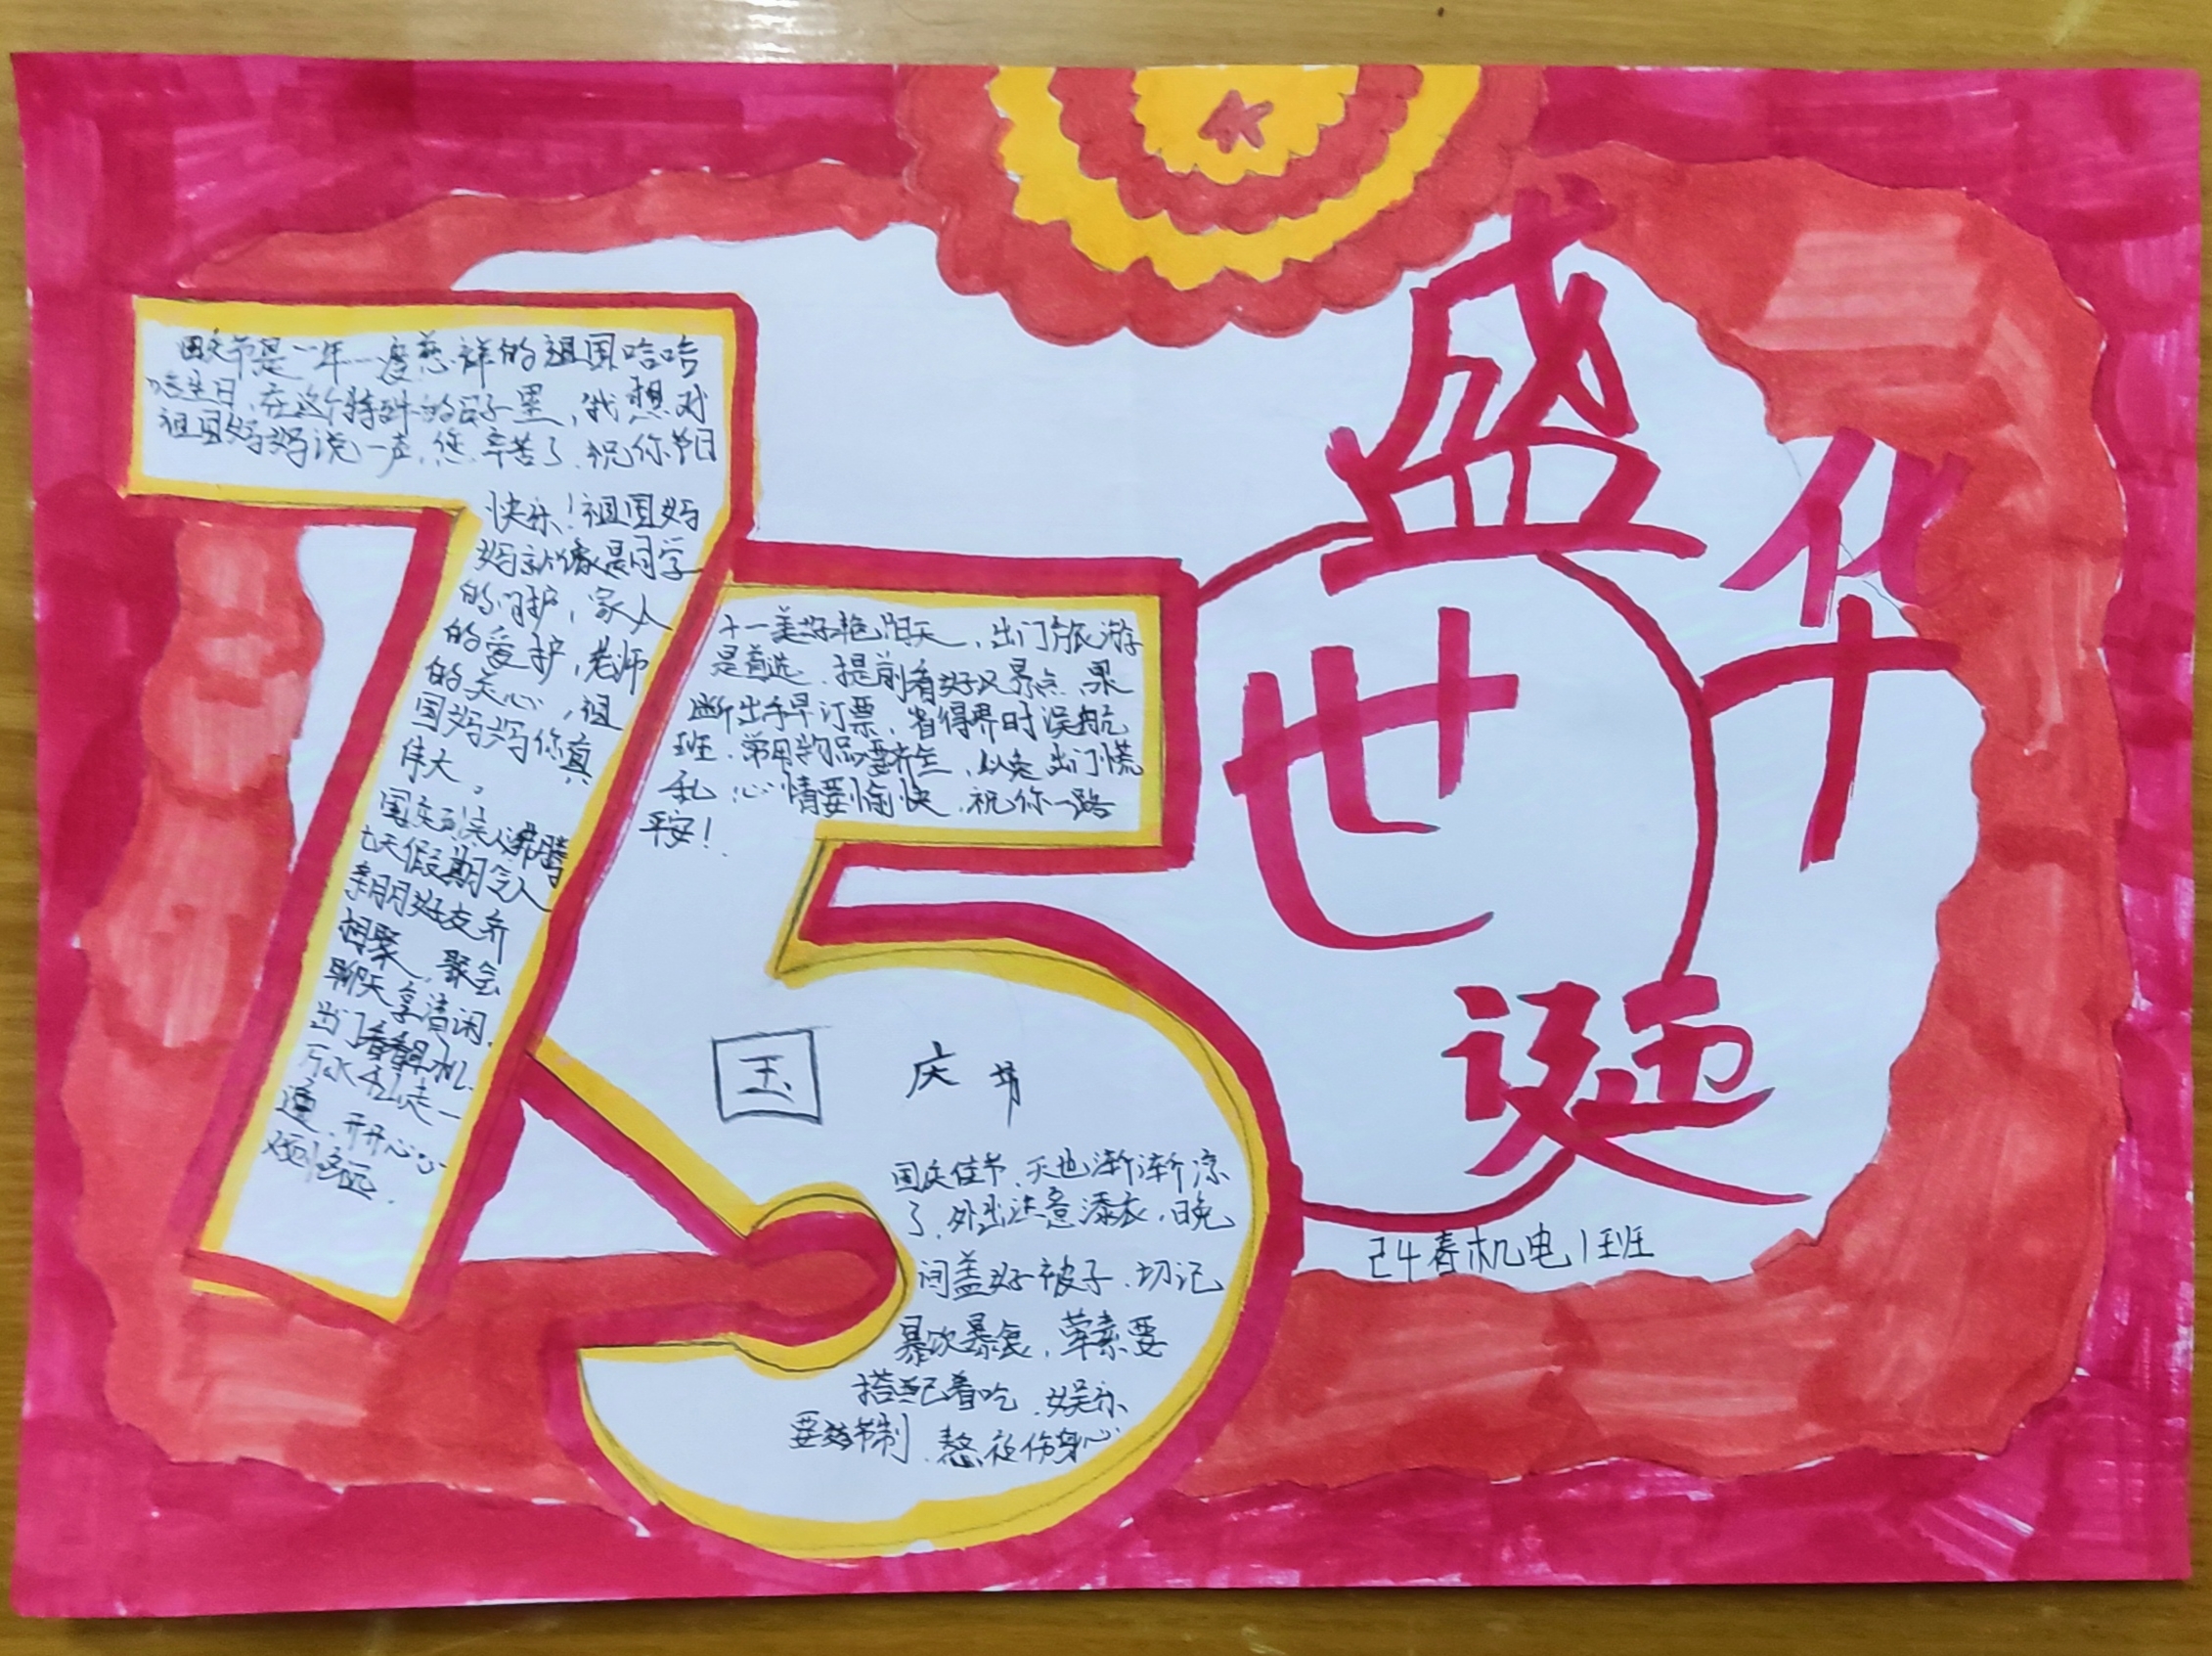 国庆节是一年一度慈祥的祖国哈哈
哈生日,在这个特殊的日子里,我想对
祖国妈妈说一声,您辛苦了.祝你节日
快乐!祖国妈
妈就像是同学
的呵护,家人
的爱护,老师
的关心,祖
国妈妈你真
伟大。
国庆到来人沸腾
七天假期令人
亲朋好友齐
相聚,聚会
聊天享清闲.
出门看看
走一
遭.开开心心
十一美好艳阳天,出门旅游
是首选.提前看好景点.果
断出手早订票,省得界时误航
班.常用药品要齐全,以免出门慌
乱.心情要愉快.祝你一路
平安!
国 庆 节
国庆佳节,天也渐渐凉
了.外出注意添衣,晚
间盖好被子.切记
暴饮暴食,荤素要
搭配着吃.娱乐
要节制.熬夜伤身心
盛世华诞
24春机电1班